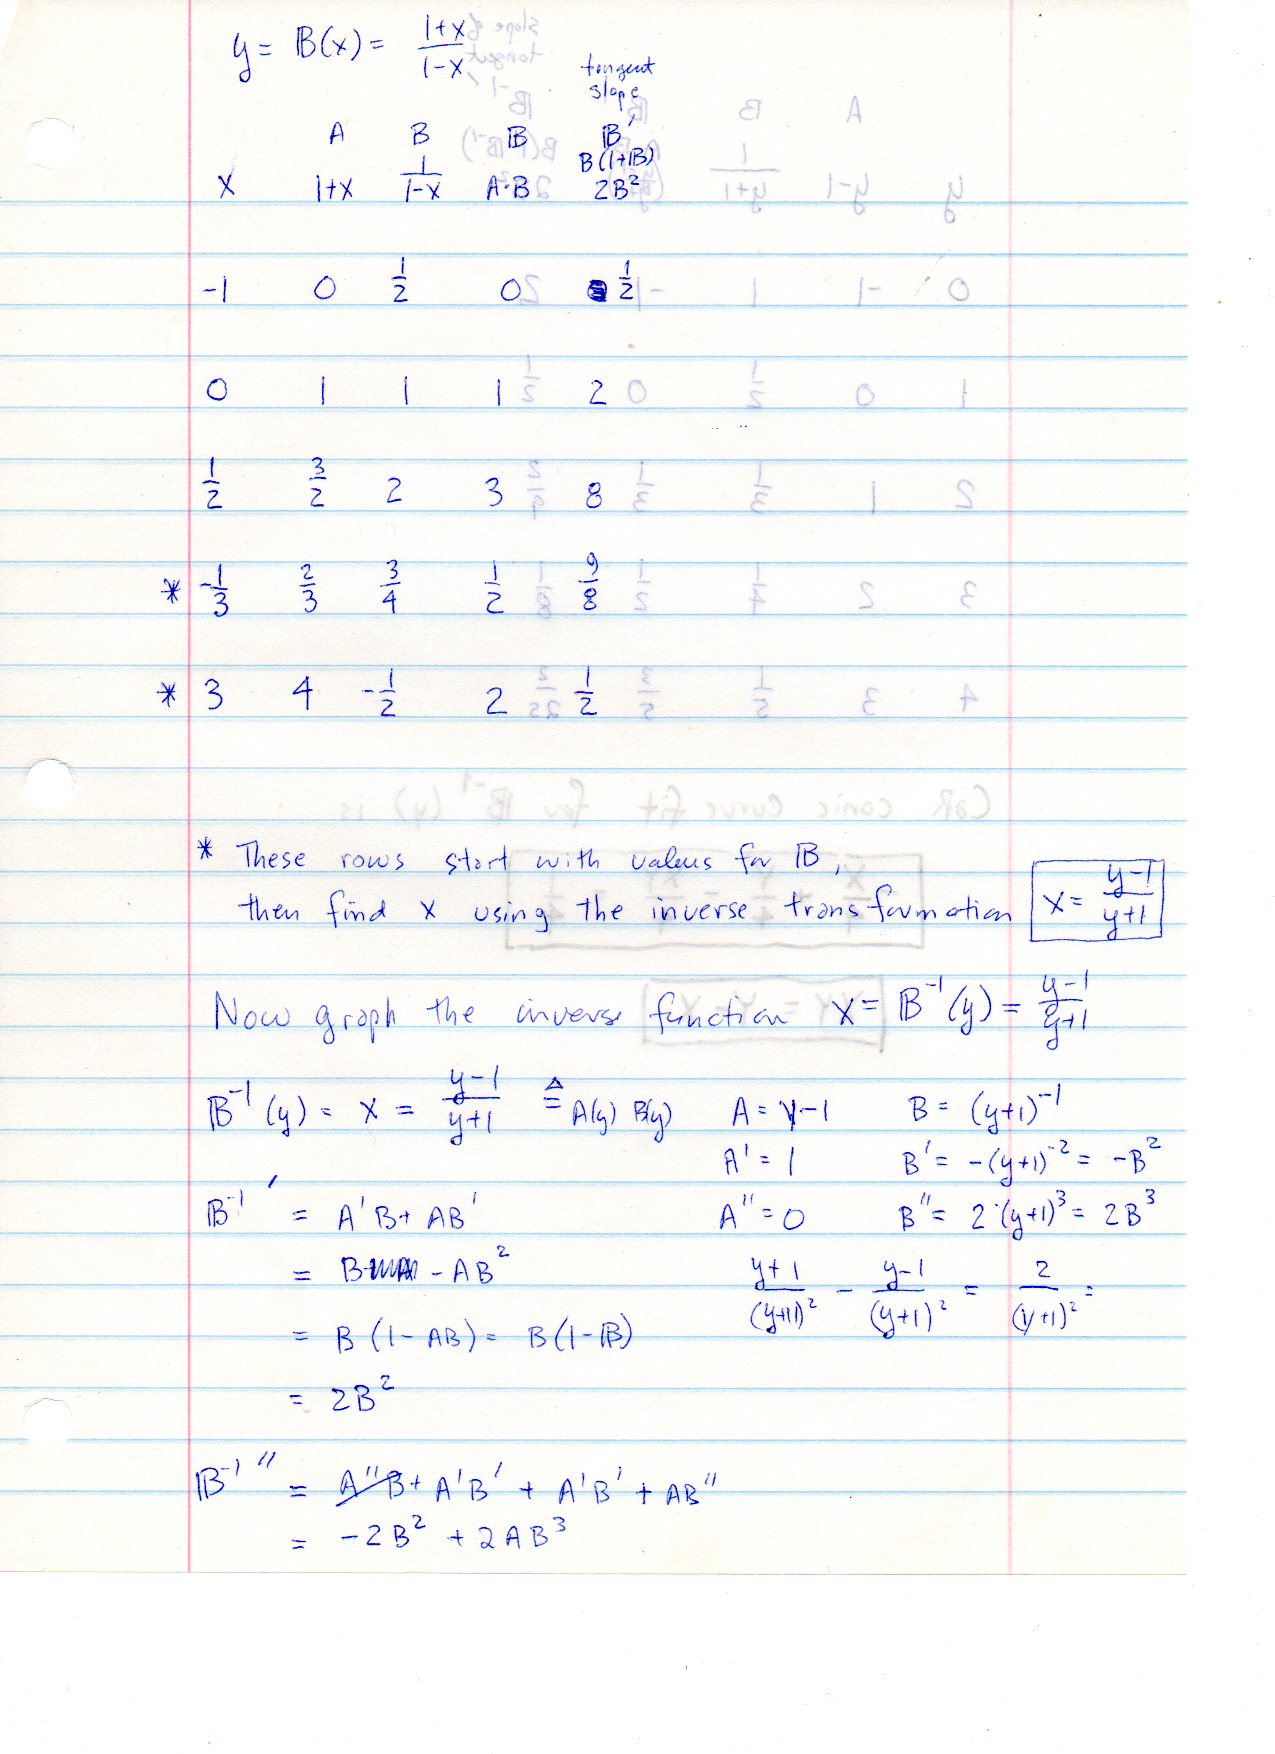 y = 𝔹(x) = (1+x)/(1-x)
tangent
slope
A B 𝔹 𝔹′
B(1+𝔹)
x 1+x 1/(1-x) A·B 2B²
-1 0 1/2 0 1/2
0 1 1 1 2
1/2 3/2 2 3 8
* -1/3 2/3 3/4 1/2 9/8
* 3 4 -1/2 2 1/2
* These rows start with values for 𝔹,
then find x using the inverse transformation x = (y-1)/(y+1)
Now graph the inverse function x = 𝔹⁻¹(y) = (y-1)/(y+1)
𝔹⁻¹(y) = x = (y-1)/(y+1) ≜ A(y) B(y) A = y-1 B = (y+1)⁻¹
A′ = 1 B′ = -(y+1)⁻² = -B²
𝔹⁻¹′ = A′B + AB′ A″ = 0 B″ = 2·(y+1)³ = 2B³
= B - AB² (y+1)/(y+1)² - (y-1)/(y+1)² = 2/(y+1)² =
= B(1-AB) = B(1-𝔹)
= 2B²
𝔹⁻¹″ = A″B + A′B′ + A′B′ + AB″
= -2B² + 2AB³